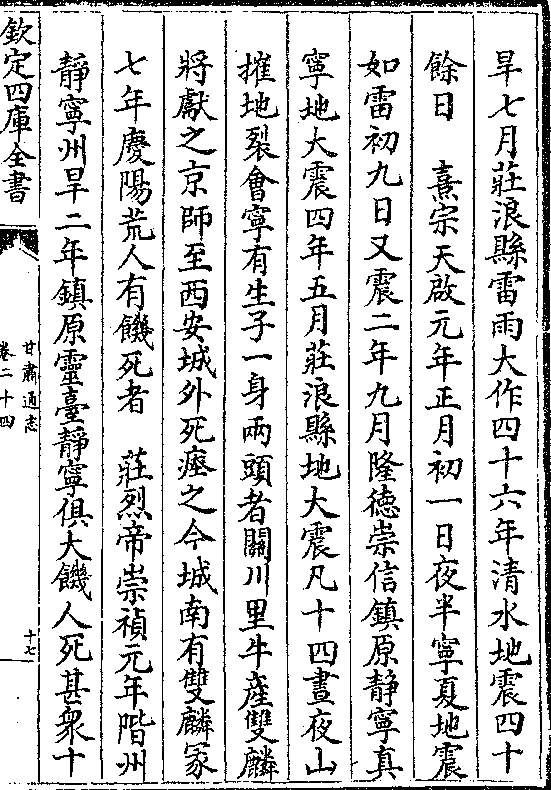 旱七月莊浪縣雷雨大作四十六年清水地震四十
餘日　熹宗天啟元年正月初一日夜半寧夏地震
如雷初九日又震二年九月隆德崇信鎮原靜寧真
寧地大震四年五月莊浪縣地大震凡十四晝夜山
摧地裂會寧有生子一身兩頭者關川里牛產雙麟
將獻之京師至西安城外死瘞之今城南有雙麟冢
七年慶陽荒人有饑死者　莊烈帝崇禎元年階州
靜寧州旱二年鎮原靈臺靜寧俱大饑人死甚衆十
欽定四庫全書
甘肅通志
卷二十四
十七